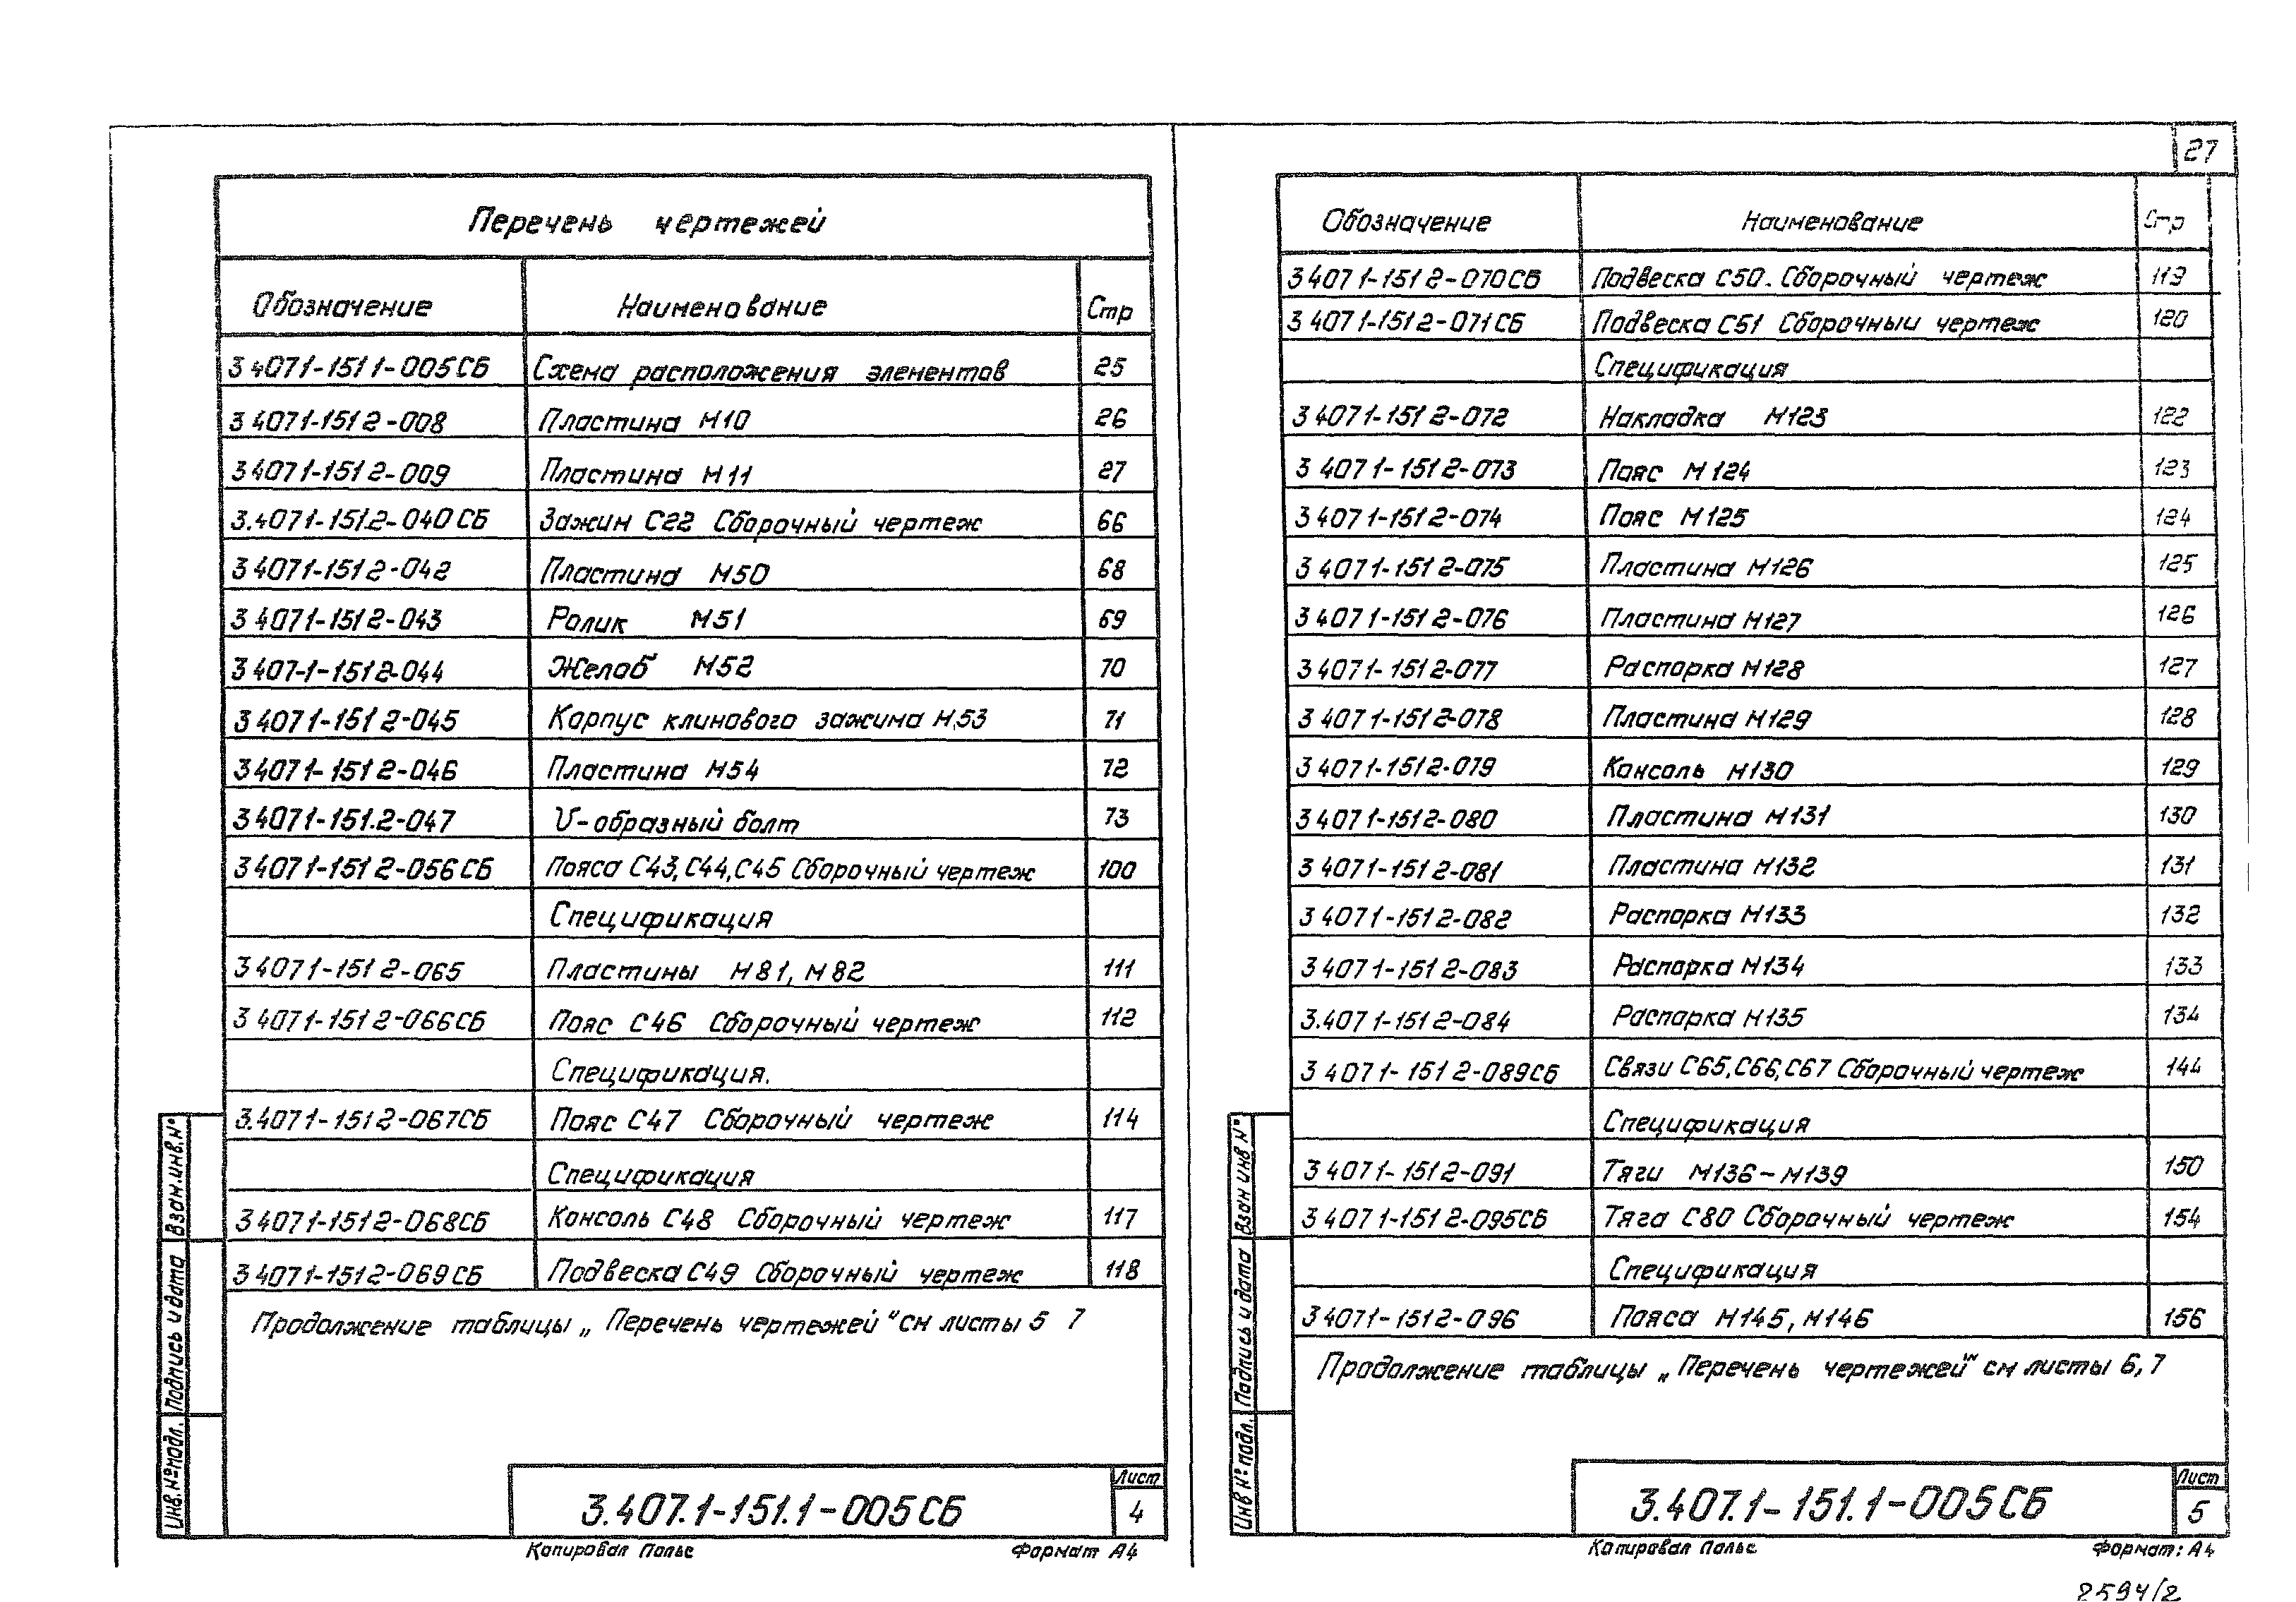 27
Перечень чертежей
Обозначение Наименование Стр
3 407 1-151 1-005СБ Схема расположения элементов 25
3 407 1-151 2-008 Пластина М10 26
3 407 1-151 2-009 Пластина М11 27
3.407 1-151.2-040СБ Зажим С22 Сборочный чертеж 66
3 407 1-151 2-042 Пластина М50 68
3 407 1-151 2-043 Ролик М51 69
3 407-1-151 2-044 Желоб М52 70
3 407 1-151 2-045 Корпус клинового зажима М53 71
3 407 1-151 2-046 Пластина М54 72
3 407 1-151.2-047 U-образный болт 73
3 407 1-151 2-056СБ Пояса С43, С44, С45 Сборочный чертеж 100
Спецификация
3 407 1-151 2-065 Пластины М81, М82 111
3 407 1-151 2-066СБ Пояс С46 Сборочный чертеж 112
Спецификация.
3.407 1-151 2-067СБ Пояс С47 Сборочный чертеж 114
Спецификация
3 407 1-151 2-068СБ Консоль С48 Сборочный чертеж 117
3 407 1-151 2-069СБ Подвеска С49 Сборочный чертеж 118
Продолжение таблицы „Перечень чертежей" см листы 5 7
Взам.инв.№
Подпись и дата
Инв.№подл.
3.407.1-151.1-005СБ
Лист
4
Копировал Полье Формат А4
Обозначение Наименование Стр
3 407 1-151 2-070СБ Подвеска С50. Сборочный чертеж 119
3 407 1-151 2-071СБ Подвеска С51 Сборочный чертеж 120
Спецификация
3 407 1-151 2-072 Накладка М123 122
3 407 1-151 2-073 Пояс М124 123
3 407 1-151 2-074 Пояс М125 124
3 407 1-151 2-075 Пластина М126 125
3 407 1-151 2-076 Пластина М127 126
3 407 1-151 2-077 Распорка М128 127
3 407 1-151 2-078 Пластина М129 128
3 407 1-151 2-079 Консоль М130 129
3 407 1-151 2-080 Пластина М131 130
3 407 1-151 2-081 Пластина М132 131
3 407 1-151 2-082 Распорка М133 132
3 407 1-151 2-083 Распорка М134 133
3.407 1-151 2-084 Распорка М135 134
3 407 1-151 2-089СБ Связи С65, С66, С67 Сборочный чертеж 144
Спецификация
3 407 1-151 2-091 Тяги М136-М139 150
3 407 1-151 2-095СБ Тяга С80 Сборочный чертеж 154
Спецификация
3 407 1-151 2-096 Пояса М145, М146 156
Продолжение таблицы „Перечень чертежей" см листы 6, 7
Взам инв №
Подпись и дата
Инв №подл.
3.407.1-151.1-005СБ
Лист
5
Копировал Полье Формат: А4
2594/2